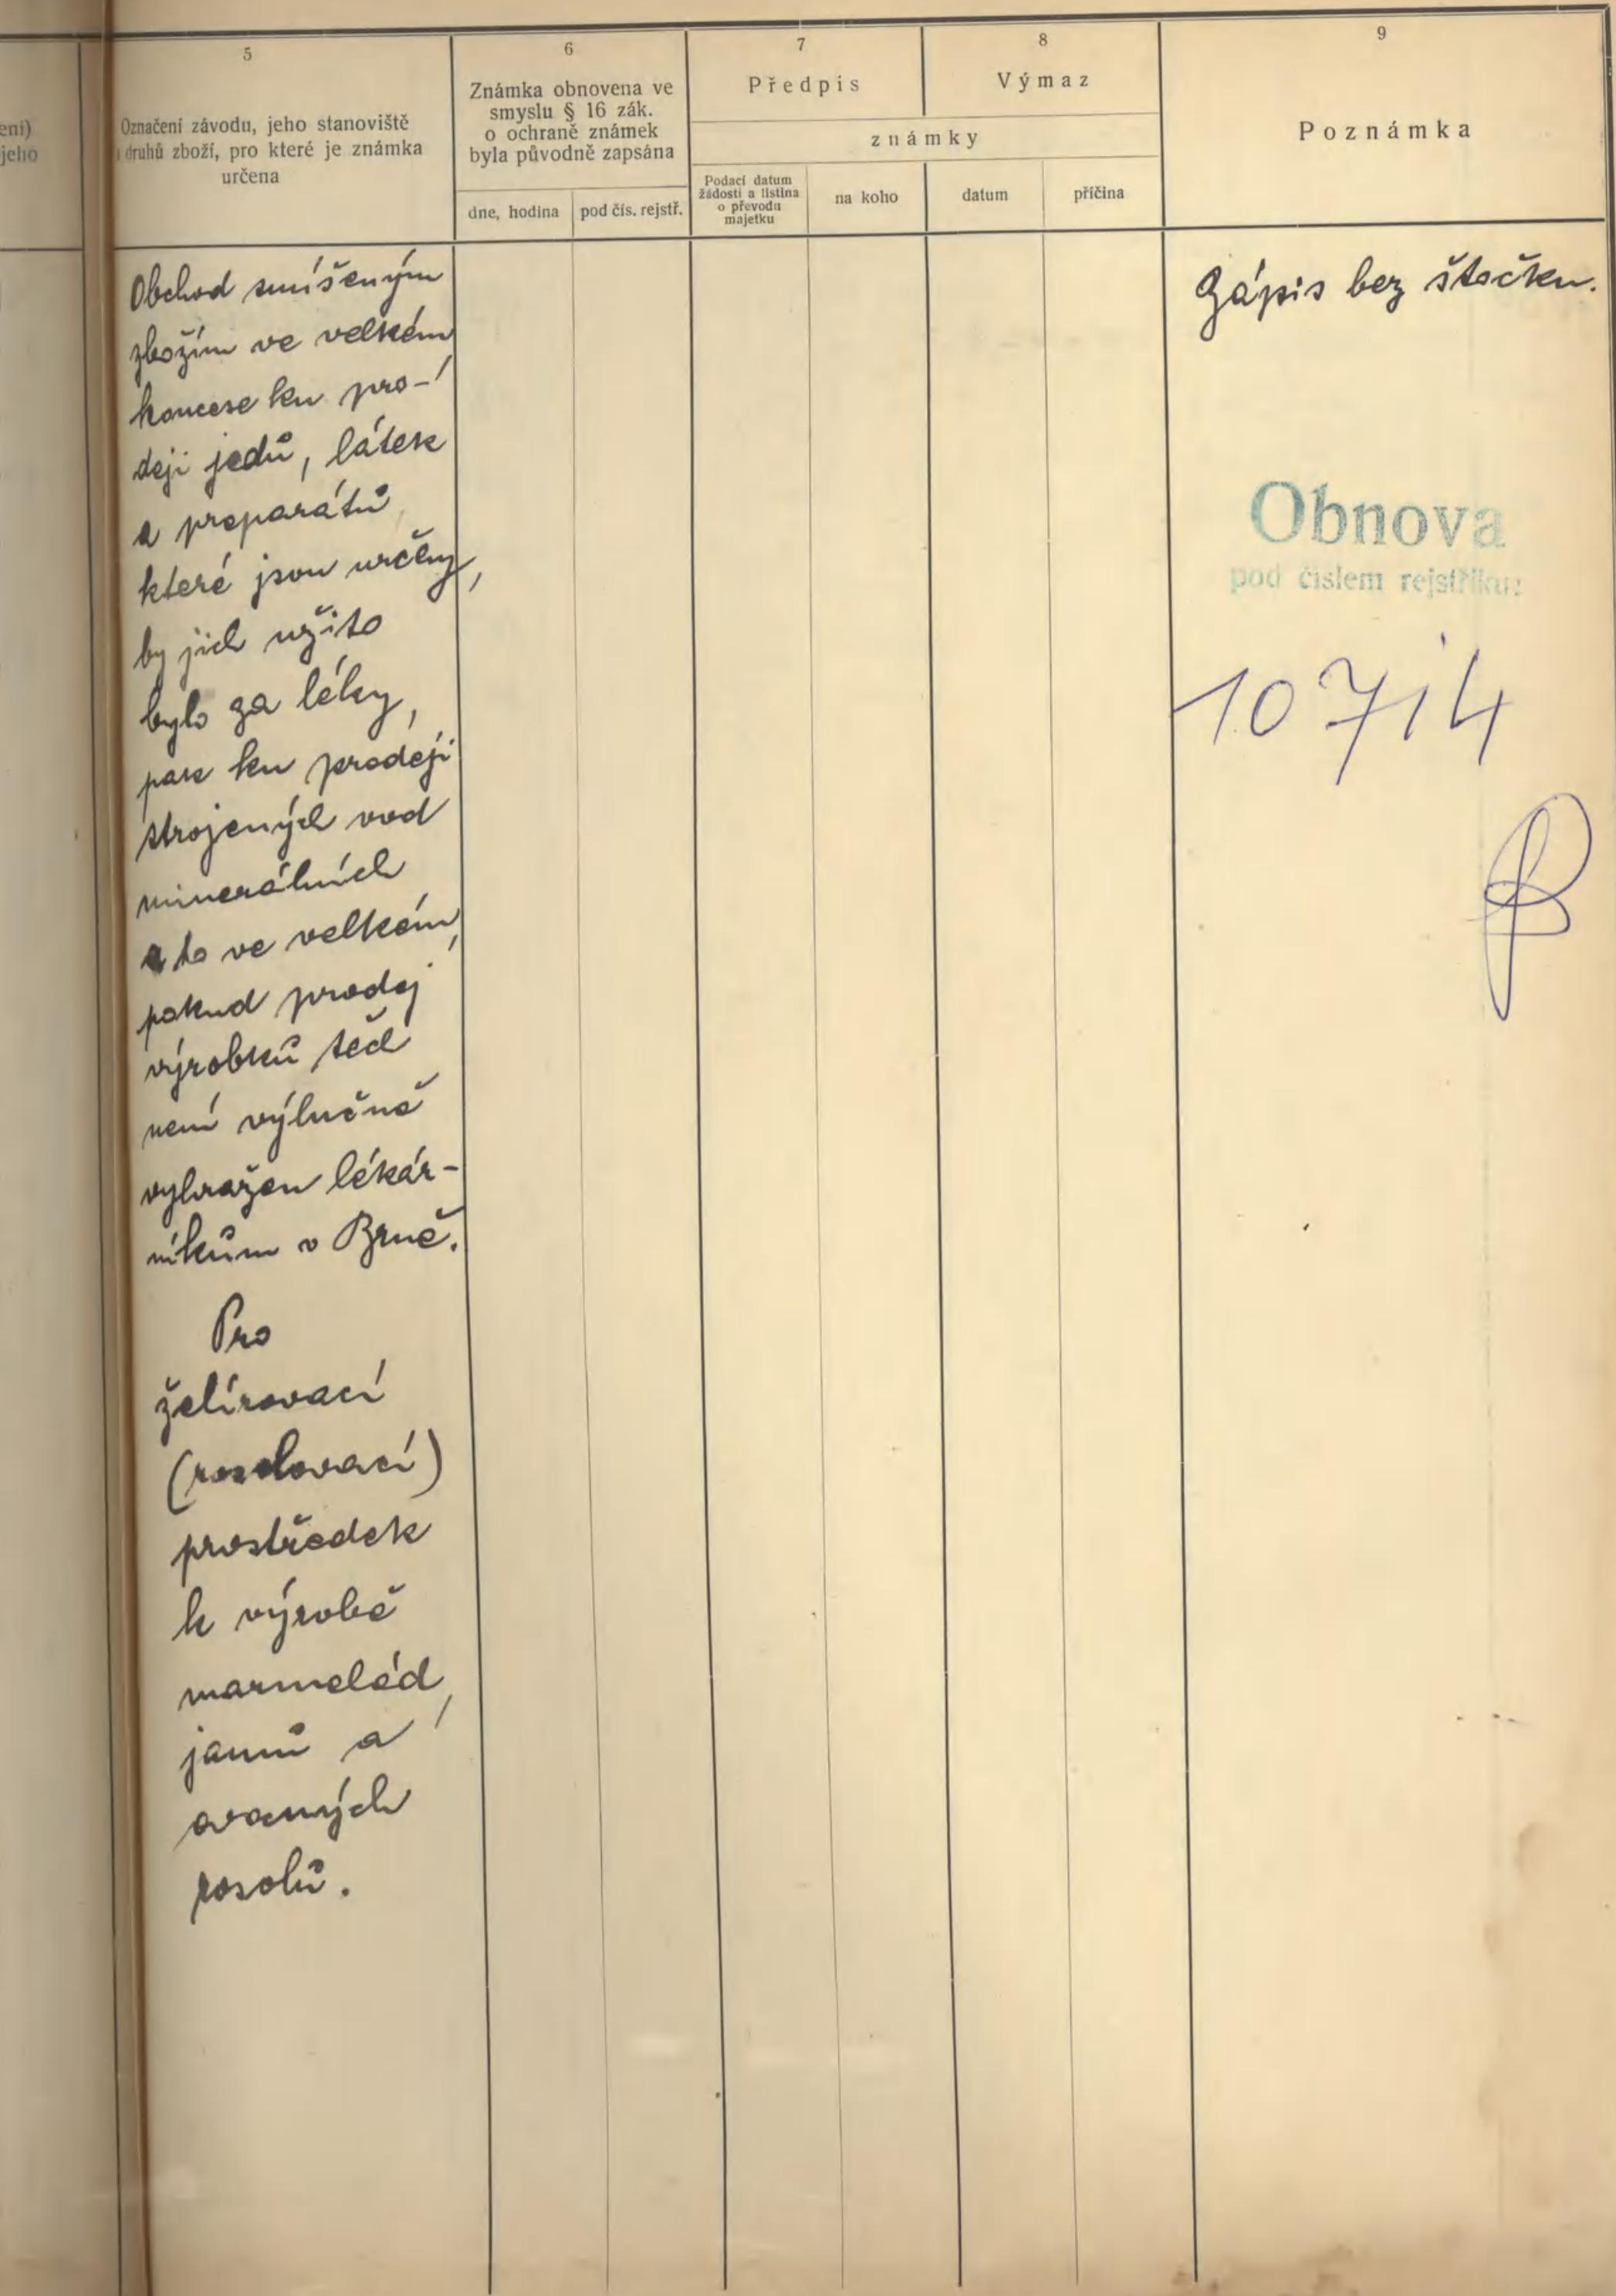 ení)
jeho
5
Označení závodu, jeho stanoviště
druhů zboží, pro které je známka
určena
6
Známka obnovena ve
smyslu § 16 zák.
o ochraně známek
byla původně zapsána
dne, hodina
pod čís. rejstř.
7
Předpis
8
Výmaz
známky
Podací datum
žádosti a listina
o převodu
majetku
na koho
datum
příčina
9
Poznámka
Obchod smíšeným
zbožím ve velkém
koncese ku pro-
deji jedů, látek
a preparátů
které jsou určeny,
by jich užito
bylo za léky,
pak ku prodeji
strojených vod
minerálních
a to ve velkém,
pokud prodej
výrobků těch
není výlučně
vyhražen lékár-
níkům v Brně.
Pro
želírovací
(rosolovací)
prostředek
k výrobě
marmelád,
jamů a
ovocných
rosolů.
Zápis bez štočku.
Obnova
pod číslem rejstříku:
10714